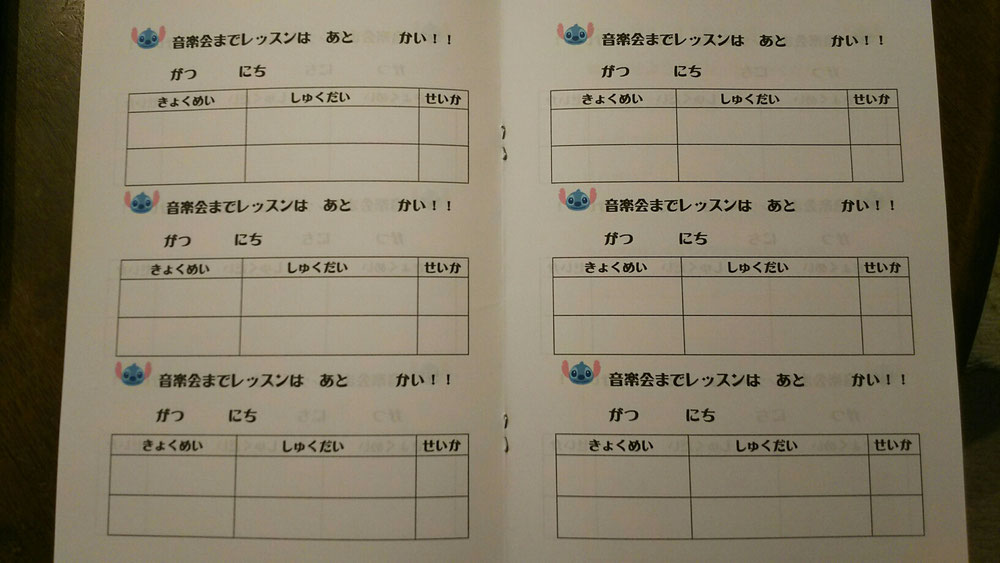 音楽会までレッスンは あと かい！！
がつ にち
きょくめい しゅくだい せいか
音楽会までレッスンは あと かい！！
がつ にち
きょくめい しゅくだい せいか
音楽会までレッスンは あと かい！！
がつ にち
きょくめい しゅくだい せいか
音楽会までレッスンは あと かい！！
がつ にち
きょくめい しゅくだい せいか
音楽会までレッスンは あと かい！！
がつ にち
きょくめい しゅくだい せいか
音楽会までレッスンは あと かい！！
がつ にち
きょくめい しゅくだい せいか